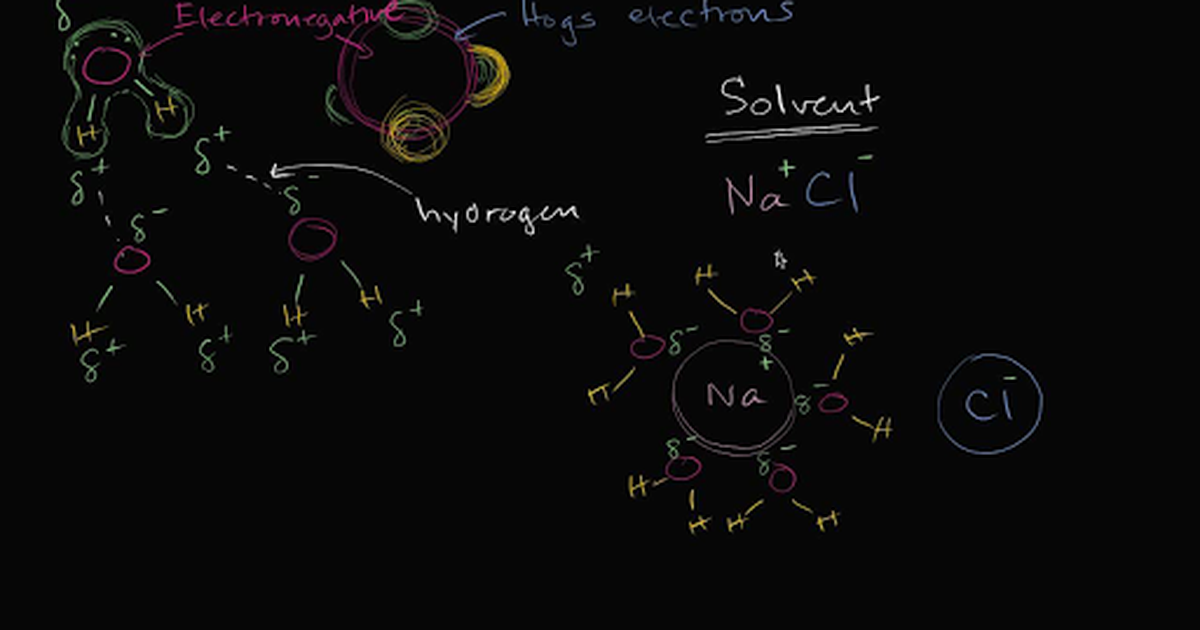 δ
Electronegative
Hogs electrons
H
H
δ+
δ+
δ-
δ-
hydrogen
H
H
δ+
δ+
H
H
δ+
δ+
Solvent
Na+ Cl-
δ+
H
H
H
δ-
δ-
H
H
Na
+
δ-
H
Cl-
δ-
δ-
H
H
H
H
H